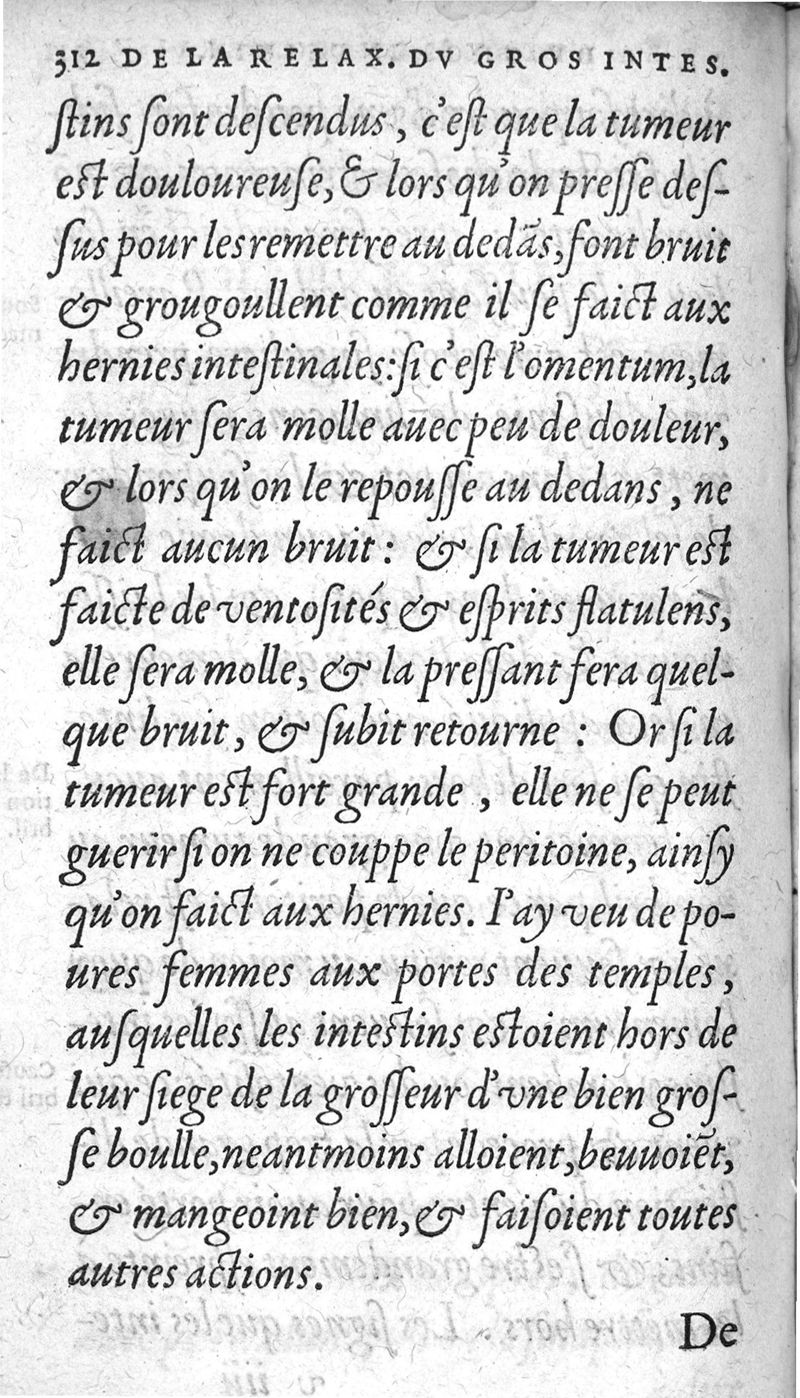 312 DE LA RELAX. DV GROS INTES.
ſtins ſont deſcendus, c'eſt que la tumeur
eſt douloureuſe, & lors qu'on preſſe deſ-
ſus pour les remettre au dedãs, font bruit
& grougoullent comme il ſe faict aux
hernies inteſtinales: ſi c'eſt l'omentum, la
tumeur ſera molle auec peu de douleur,
& lors qu'on le repouſſe au dedans, ne
faict aucun bruit: & ſi la tumeur eſt
faicte de ventoſités & eſprits flatulens,
elle ſera molle, & la preſſant fera quel-
que bruit, & ſubit retourne : Or ſi la
tumeur eſt fort grande, elle ne ſe peut
guerir ſi on ne couppe le peritoine, ainſy
qu'on faict aux hernies. I'ay veu de po-
ures femmes aux portes des temples,
auſquelles les inteſtins eſtoient hors de
leur ſiege de la groſſeur d'vne bien groſ-
ſe boulle, neantmoins alloient, beuuoiẽt,
& mangeoint bien, & faiſoient toutes
autres actions.
De